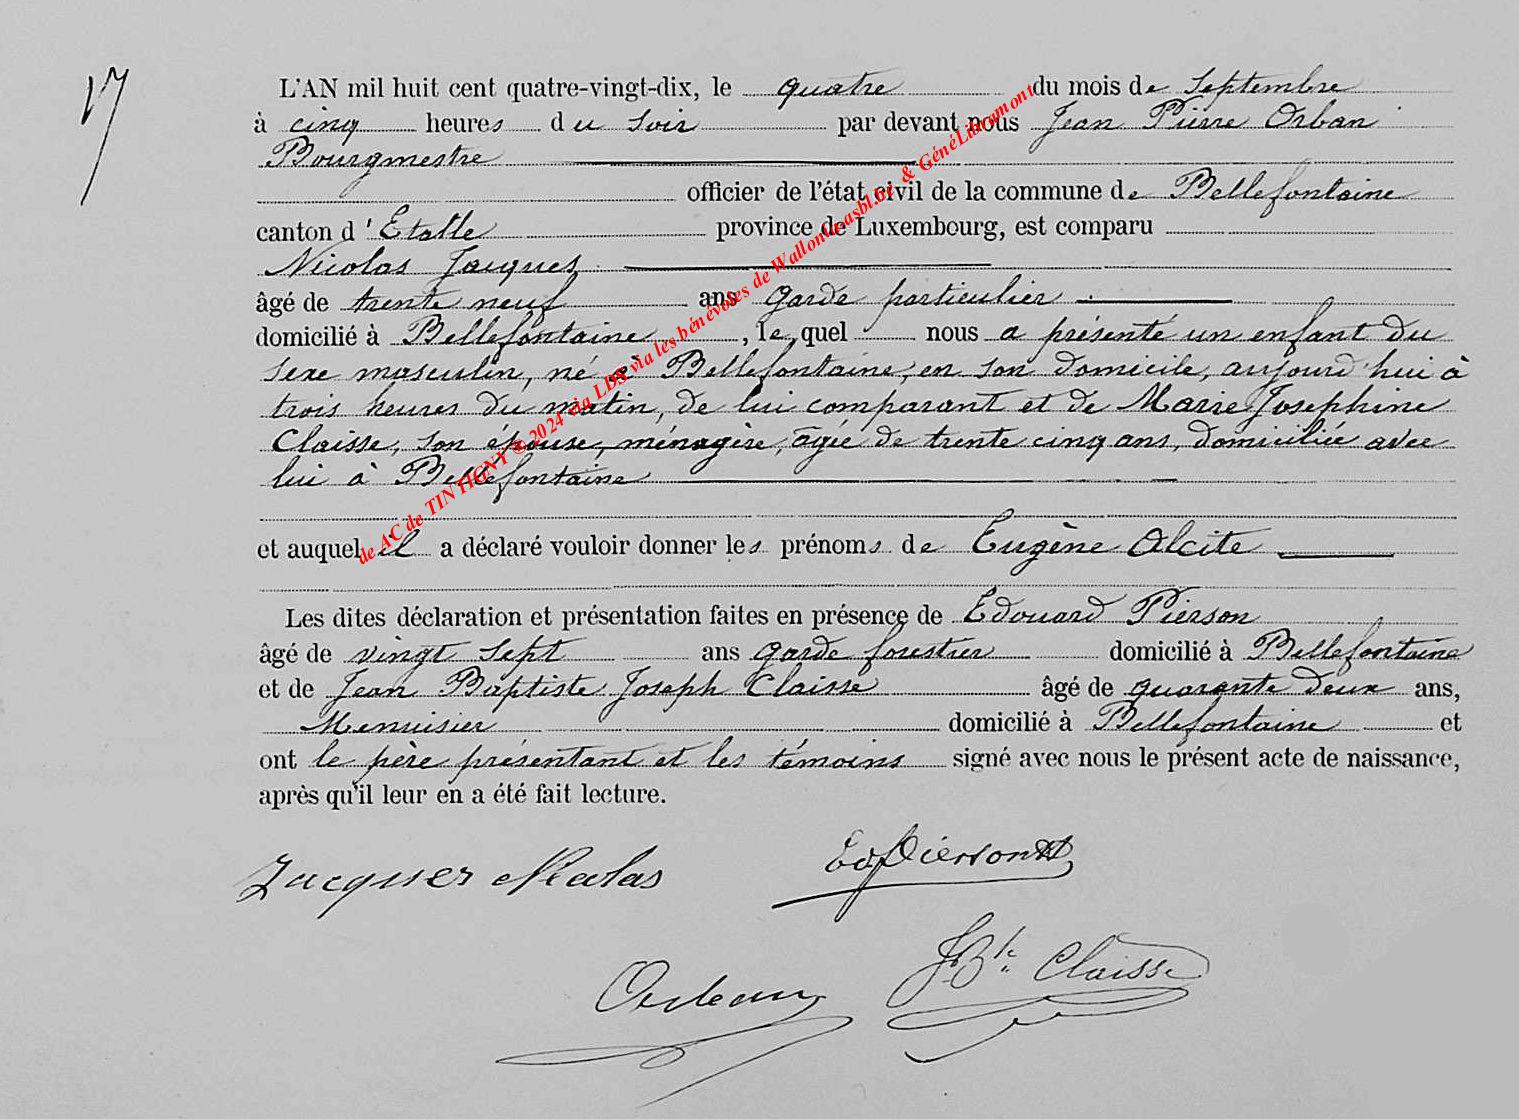 17
L'AN mil huit cent quatre-vingt-dix, le quatre du mois de Septembre
à cinq heures du soir par devant nous Jean Pierre Orban
Bourgmestre
officier de l'état civil de la commune de Bellefontaine
canton d'Etalle province de Luxembourg, est comparu
Nicolas Jacques
âgé de trente neuf ans garde particulier
domicilié à Bellefontaine, lequel nous a présenté un enfant du
sexe masculin, né à Bellefontaine, en son domicile, aujourd'hui à
trois heures du matin, de lui comparant et de Marie Josephine
Claisse, son épouse, ménagère, âgée de trente cinq ans, domiciliée avec
lui à Bellefontaine
et auquel il a déclaré vouloir donner les prénoms de Eugène Alcite
Les dites déclaration et présentation faites en présence de Edouard Pierson
âgé de vingt sept ans garde forestier domicilié à Bellefontaine
et de Jean Baptiste Joseph Claisse âgé de quarante deux ans,
Menuisier domicilié à Bellefontaine et
ont le père présentant et les témoins signé avec nous le présent acte de naissance,
après qu'il leur en a été fait lecture.
Jacques Nicolas Ed Pierson
Orban JBte Claisse
de AC de TINTIGNY © 2024 via LDS via les bénévoles de Wallonia-asbl.be & GénéLibramont